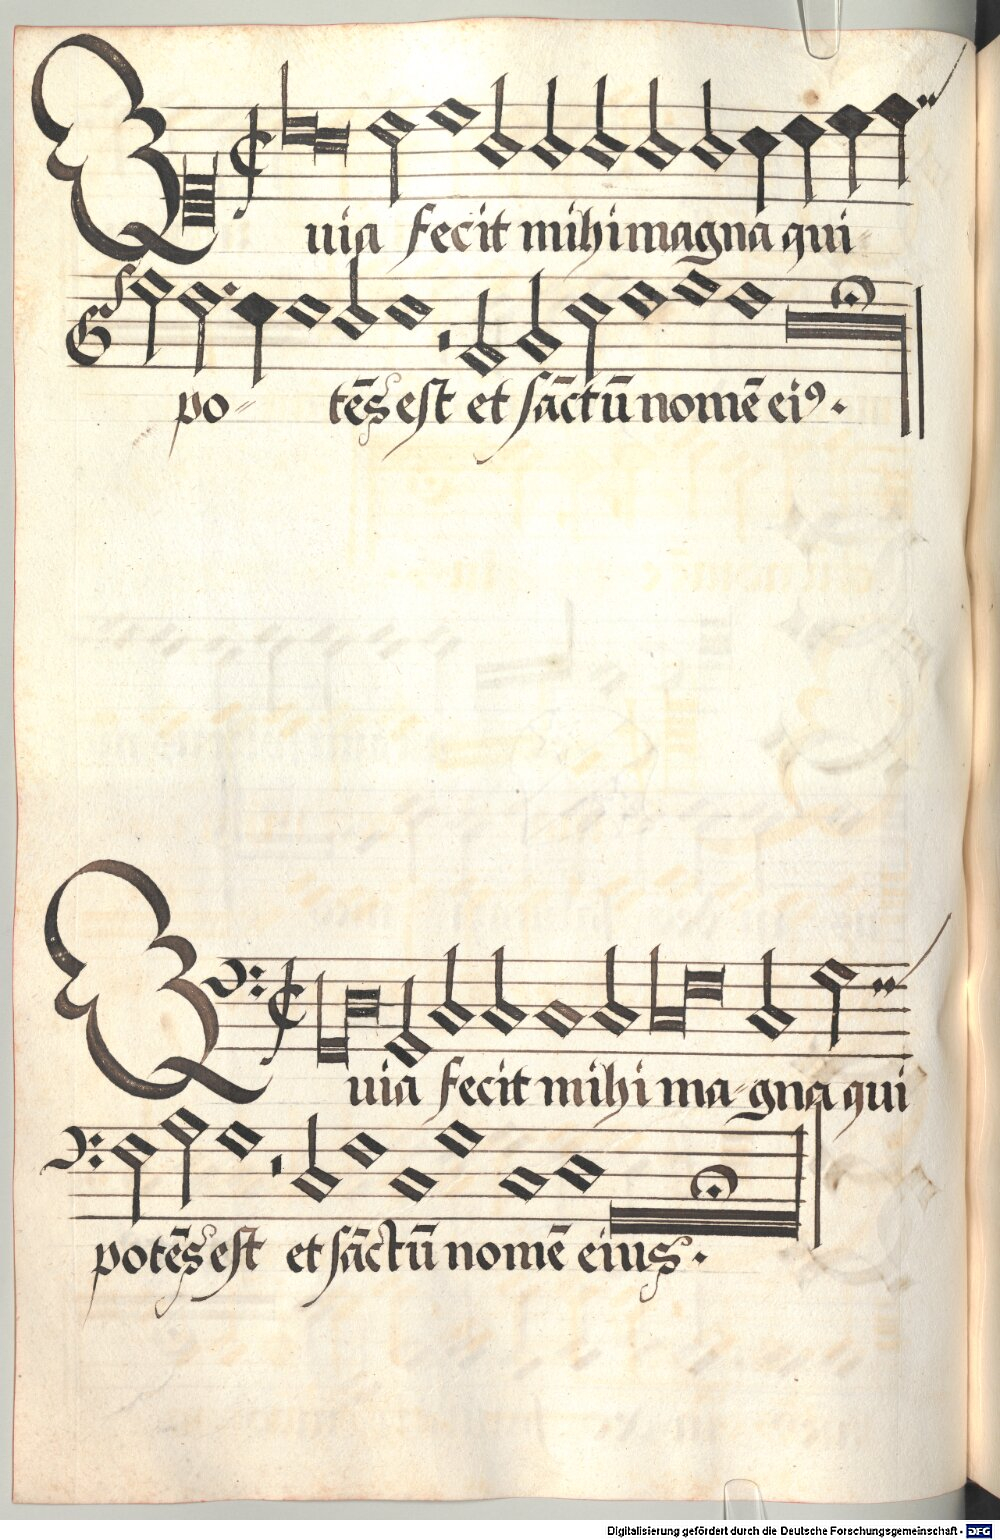 Quia fecit mihi magna qui-
po- tēs est et sāctū nomē ei⁹.
Quia fecit mihi ma-gna qui
potēs est et sāctū nomē eius.
Digitalisierung gefördert durch die Deutsche Forschungsgemeinschaft - DFG